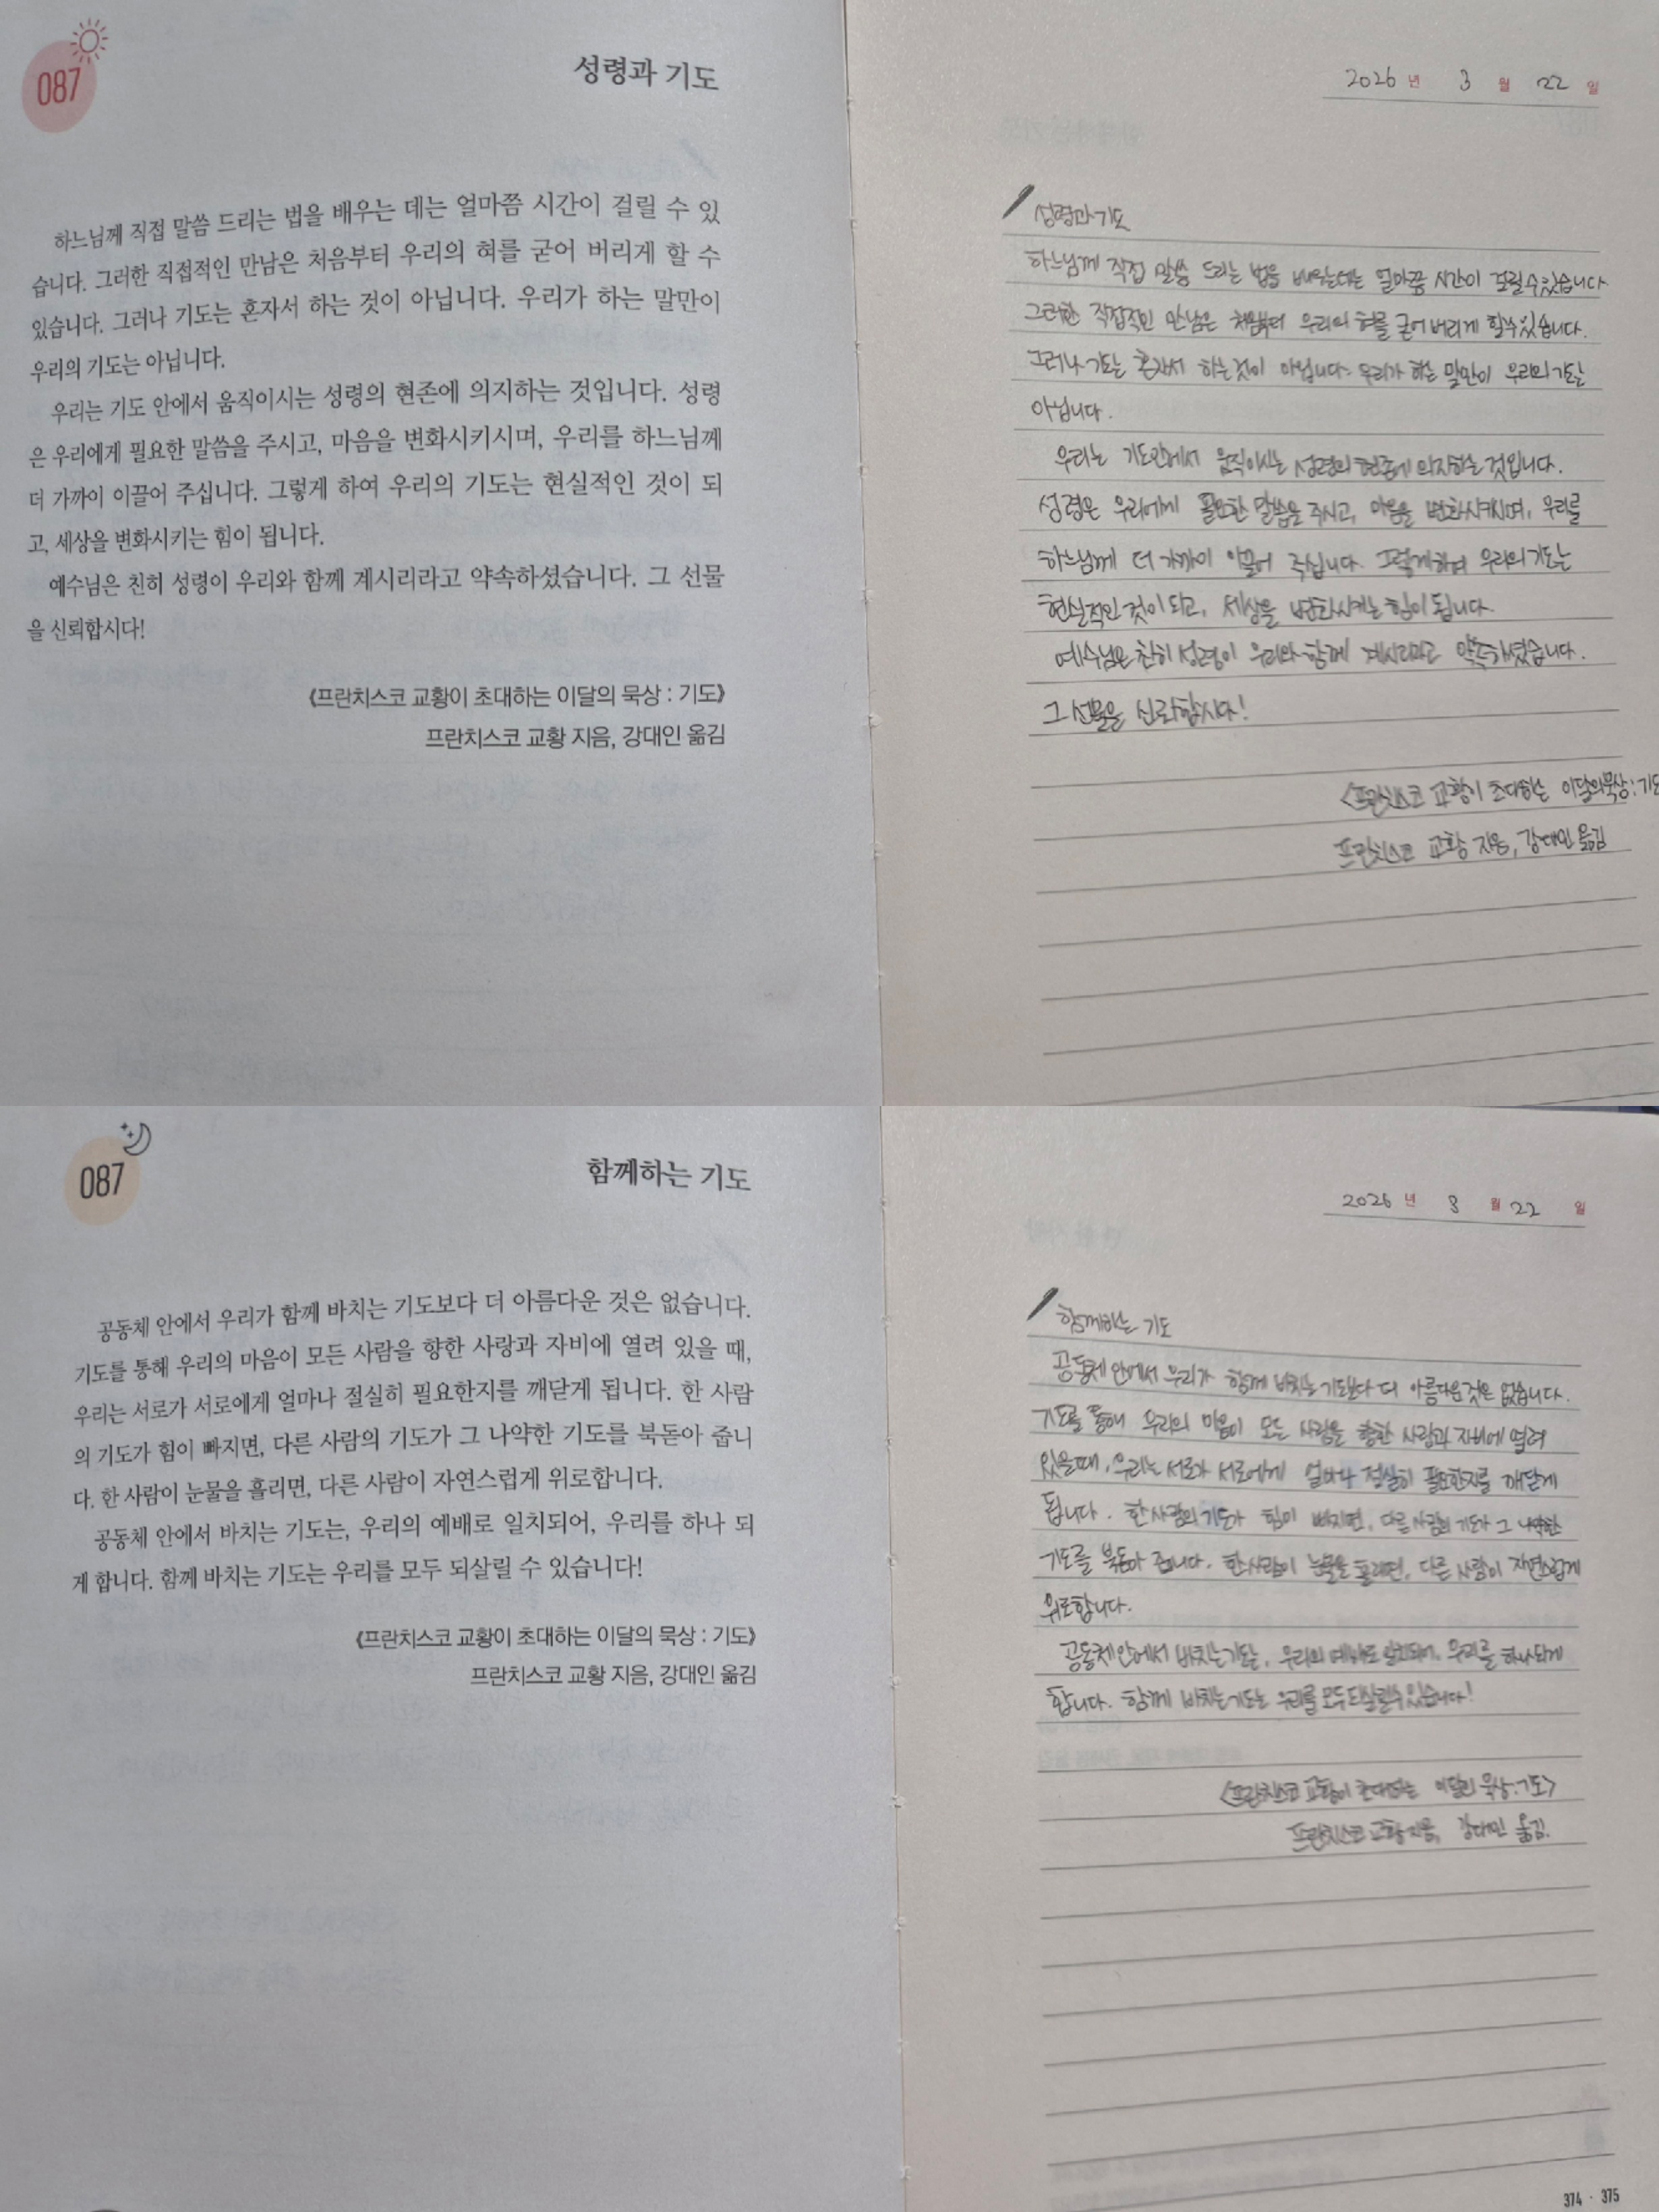 087
성령과 기도
하느님께 직접 말씀 드리는 법을 배우는 데는 얼마쯤 시간이 걸릴 수 있
습니다. 그러한 직접적인 만남은 처음부터 우리의 혀를 굳어 버리게 할 수
있습니다. 그러나 기도는 혼자서 하는 것이 아닙니다. 우리가 하는 말만이
우리의 기도는 아닙니다.
우리는 기도 안에서 움직이시는 성령의 현존에 의지하는 것입니다. 성령
은 우리에게 필요한 말씀을 주시고, 마음을 변화시키시며, 우리를 하느님께
더 가까이 이끌어 주십니다. 그렇게 하여 우리의 기도는 현실적인 것이 되
고, 세상을 변화시키는 힘이 됩니다.
예수님은 친히 성령이 우리와 함께 계시리라고 약속하셨습니다. 그 선물
을 신뢰합시다!
《프란치스코 교황이 초대하는 이달의 묵상 : 기도》
프란치스코 교황 지음, 강대인 옮김
2026년 3월 22일
성령과 기도
하느님께 직접 말씀 드리는 법을 배우는데는 얼마쯤 시간이 걸릴수있습니다
그러한 직접적인 만남은 처음부터 우리의 혀를 굳어 버리게 할수 있습니다.
그러나 기도는 혼자서 하는것이 아닙니다. 우리가 하는 말만이 우리의 기도는
아닙니다.
우리는 기도안에서 움직이시는 성령의 현존에 의지하는 것입니다.
성령은 우리에게 필요한 말씀을 주시고, 마음을 변화시키시며, 우리를
하느님께 더 가까이 이끌어 주십니다. 그렇게하여 우리의 기도는
현실적인 것이 되고, 세상을 변화시키는 힘이 됩니다.
예수님은 친히 성령이 우리와 함께 계시리라고 약속하셨습니다.
그 선물을 신뢰합시다!
<프란치스코 교황이 초대하는 이달의묵상:기도
프란치스코 교황 지음, 강대인 옮김
087
함께하는 기도
공동체 안에서 우리가 함께 바치는 기도보다 더 아름다운 것은 없습니다.
기도를 통해 우리의 마음이 모든 사람을 향한 사랑과 자비에 열려 있을 때,
우리는 서로가 서로에게 얼마나 절실히 필요한지를 깨닫게 됩니다. 한 사람
의 기도가 힘이 빠지면, 다른 사람의 기도가 그 나약한 기도를 북돋아 줍니
다. 한 사람이 눈물을 흘리면, 다른 사람이 자연스럽게 위로합니다.
공동체 안에서 바치는 기도는, 우리의 예배로 일치되어, 우리를 하나 되
게 합니다. 함께 바치는 기도는 우리를 모두 되살릴 수 있습니다!
《프란치스코 교황이 초대하는 이달의 묵상 : 기도》
프란치스코 교황 지음, 강대인 옮김
2026년 3월 22일
함께하는 기도
공동체 안에서 우리가 함께 바치는 기도보다 더 아름다운것은 없습니다.
기도를 통해 우리의 마음이 모든 사람을 향한 사랑과 자비에 열려
있을때, 우리는 서로가 서로에게 얼마나 절실히 필요한지를 깨닫게
됩니다. 한사람의 기도가 힘이 빠지면, 다른 사람의 기도가 그 나약한
기도를 북돋아 줍니다. 한사람이 눈물을 흘리면, 다른 사람이 자연스럽게
위로합니다.
공동체안에서 바치는기도는, 우리의 예배로 일치되어, 우리를 하나되게
합니다. 함께 바치는기도는 우리를 모두 되살릴수 있습니다!
<프란치스코 교황이 초대하는 이달의 묵상:기도>
프란치스코 교황지음, 강대인 옮김.
374 · 375